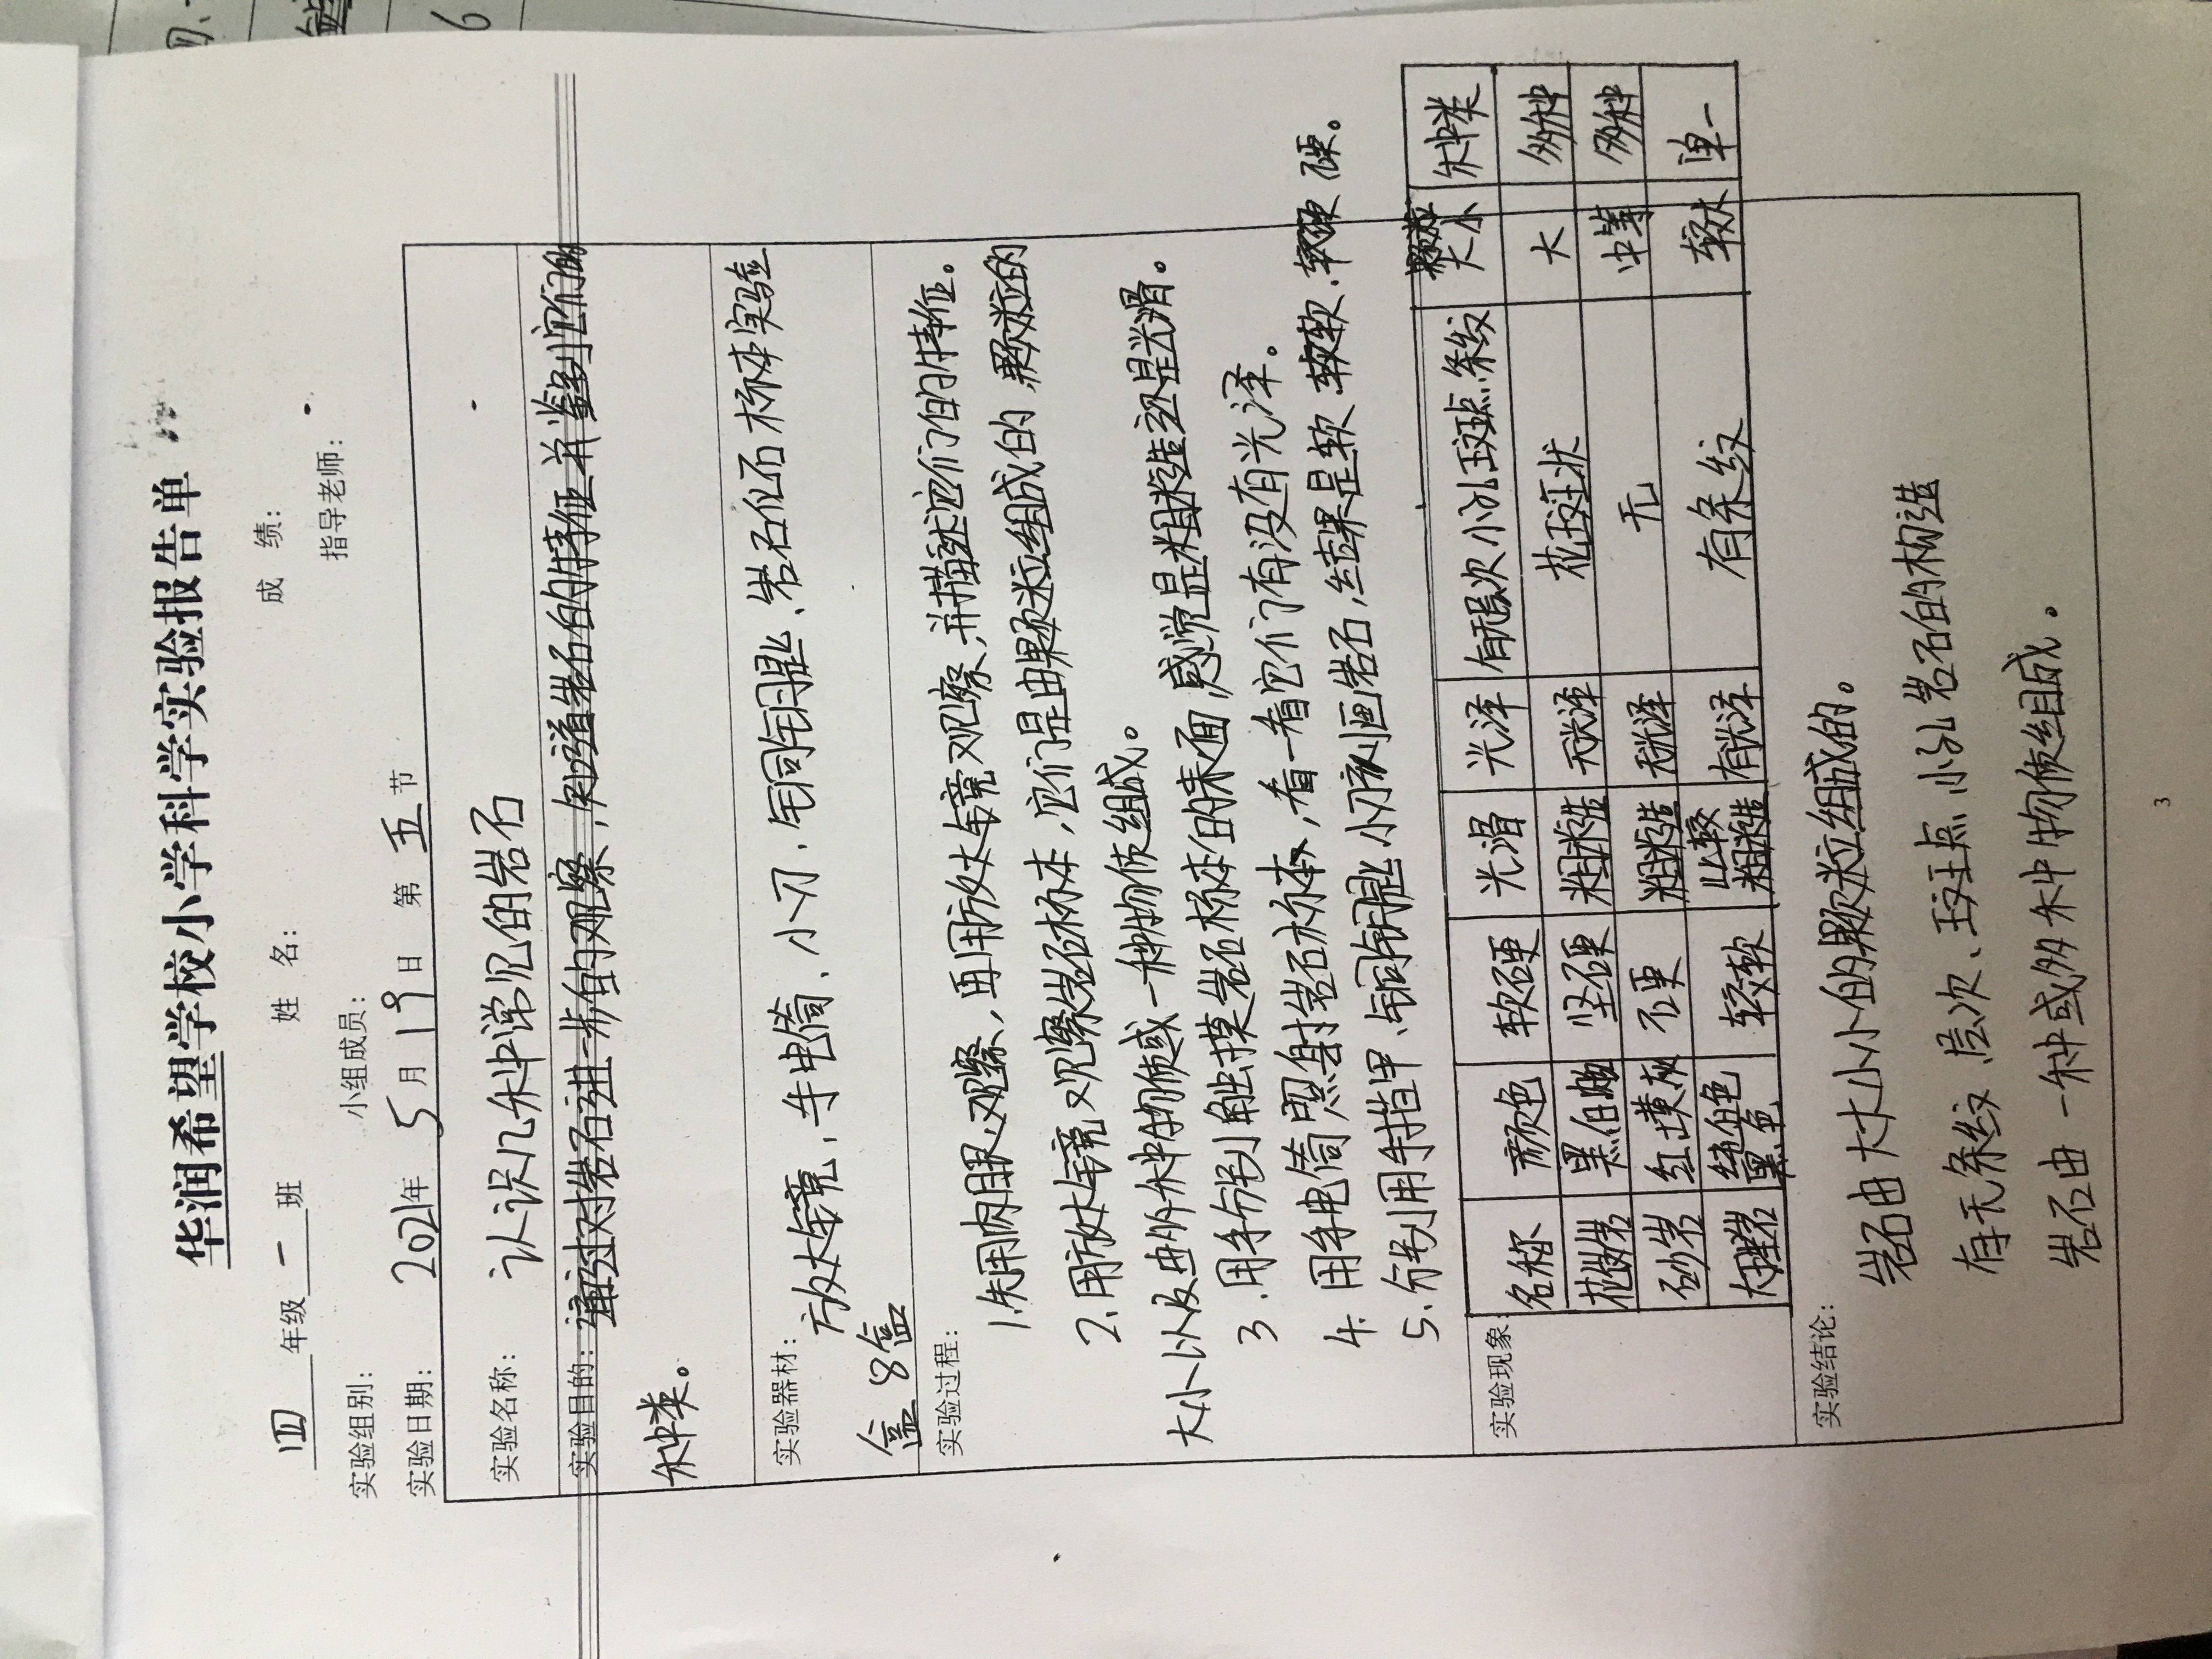 华润希望学校小学科学实验报告单
四 年级 一 班 姓 名： 成 绩：
实验组别： 小组成员： 指导老师：
实验日期： 2021年 5 月 19 日 第 五 节
实验名称： 认识几种常见的岩石
实验目的：通过对岩石进一步的观察，知道岩石的特征并鉴别它们的
种类。
实验器材：
放大镜、手电筒、小刀、铜钥匙、岩石化石标本实验
盒 8盒
实验过程：
1.先用肉眼观察，再用放大镜观察，并描述它们的特征。
2.用放大镜观察岩石标本，它们是由颗粒组成的 颗粒的
大小以及由几种物质或一种物质组成。
3.用手分别触摸岩石标本的表面，感觉是粗糙还是光滑。
4.用手电筒照射岩石标本，看一看它们有没有光泽。
5.分别用手指甲、铜钥匙、小刀刻画岩石，结果是软、较软、较硬、硬。
实验现象：
名称 颜色 软硬 光滑 光泽 有无层次小孔斑点条纹 颗粒大小 种类
花岗岩 黑白 坚硬 粗糙 无光泽 花斑状 大 多种
砂岩 红黄灰 硬 粗糙 无光泽 无 中等 多种
大理岩 白色黑色 较软 比较粗糙 有光泽 有条纹 单一
实验结论：
岩石由大大小小的颗粒组成的。
有无条纹、层次、斑点、小孔岩石的构造
岩石由一种或多种物质组成。
3
6